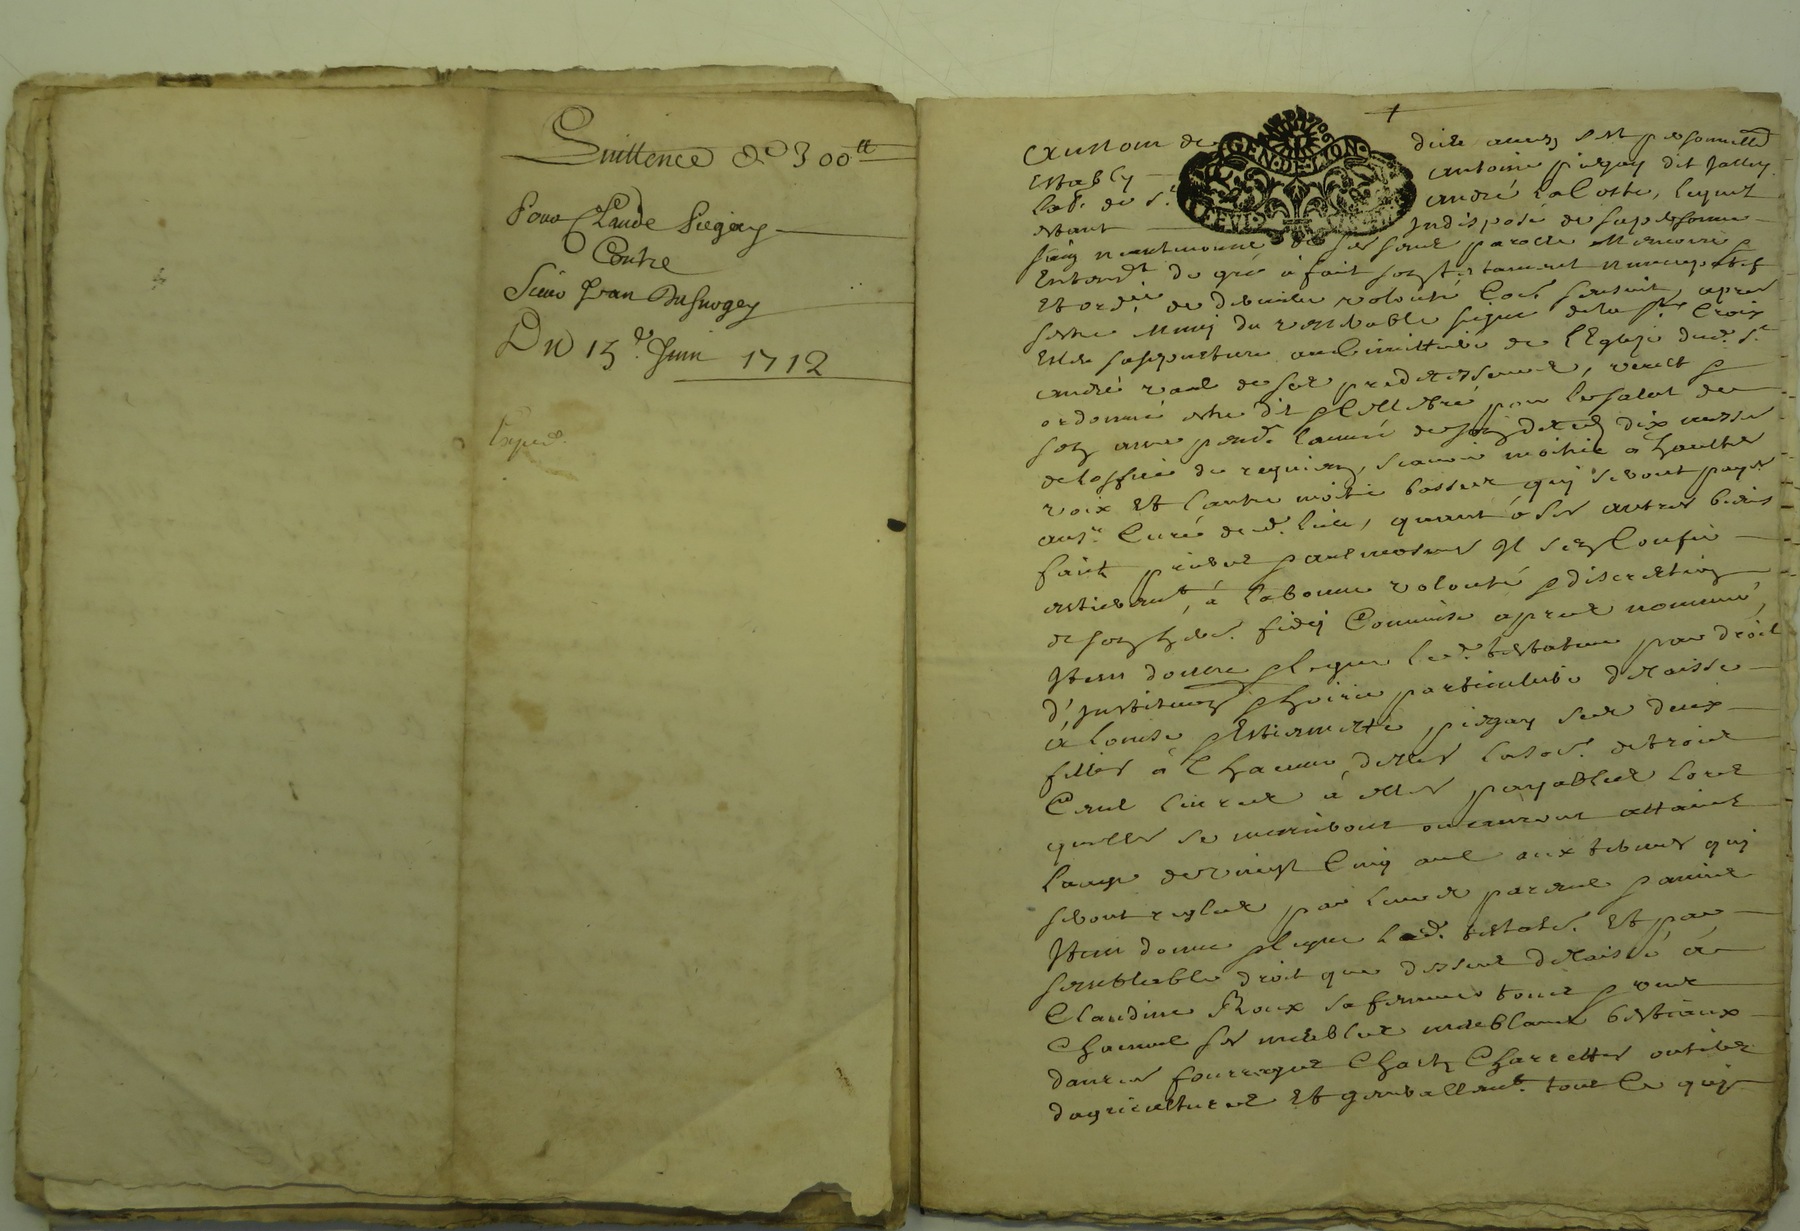 Quittence De 300 tt
Pour Claude Piegay
Contre
Sieur Jean Dusurgey
Du 15e. Juin 1712
Exped.
GEN·DE·LYON·
Au nom de dieu amen, s'est personnelt
Estably Antoine piegay dit Jallin
lab. de St. André la Coste, lequel
estant Indisposé de sa personne
sain neantmoins de ses sens parolle Memoire
Entendt. de gré a fait son testament nuncupatif
et ordce. de derniere volonté Co. s'ensuit, apres
s'estre Muny du venerable signe de la ste. Croix
Esleu sa sepulture au Cimittiere de l'Eglize dud. St.
André vault de ses predecesseurs, veult &
ordonne estre dit & Cellebré pour le salut de
son ame pendt. l'année de son deced dix messes
de l'office de requiem, scavoir moitié a haultes
voix Et l'autre moitié basses qui seront payes
au sr. Curé dud. lieu, quant a ses autres biens
faits prieres & aulmosnes Il s'en Confie
entierement, a la bonne volonté & discretion
de son her. fidei Commise apres nommé,
Item donne & legue led. testateur par droit
d'Institution & hoirie particuliere delaisse
a Louise & Estiennette piegay ses deux
filles a Chacune d'elles la so. de trois
Cent livres a elles payables lors
qu'elles se marieront ou auront attaint
l'aage de vingt Cinq ans aux termes qui
seront reglés par leurs parens & amis
Item donne & legue led. testat. Et par
semblable droit que dessus delaisse a
Claudine Roux sa femme tous & uns
Chacuns ses meubles meublans bestiaux
danrés fourrages Chars Charrettes outils
d'agricultures Et generallemt. tout Ce qui